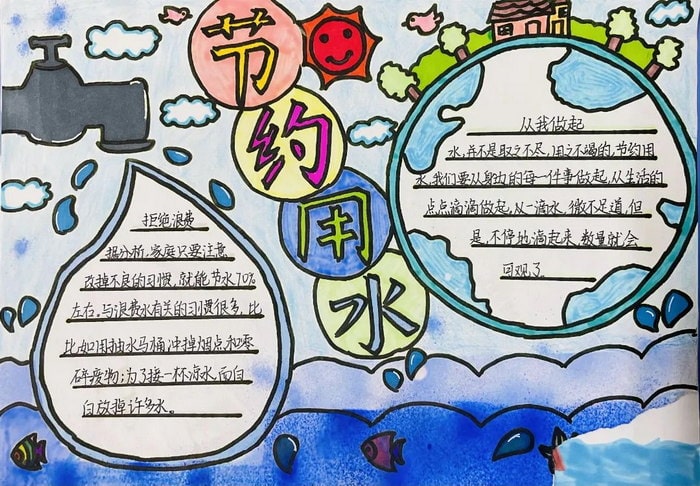 节约用水
从我做起
水,并不是取之不尽,用之不竭的,节约用
水,我们要从身边的每一件事做起,从生活的
点点滴滴做起,从一滴水,微不足道,但
是,不停地滴起来,数量就会
可观了
拒绝浪费
据分析,家庭只要注意
改掉不良的习惯,就能节水70%
左右。与浪费水有关的习惯很多,比
比如用抽水马桶冲掉烟点和零
碎废物;为了接一杯凉水,而白
白放掉许多水。